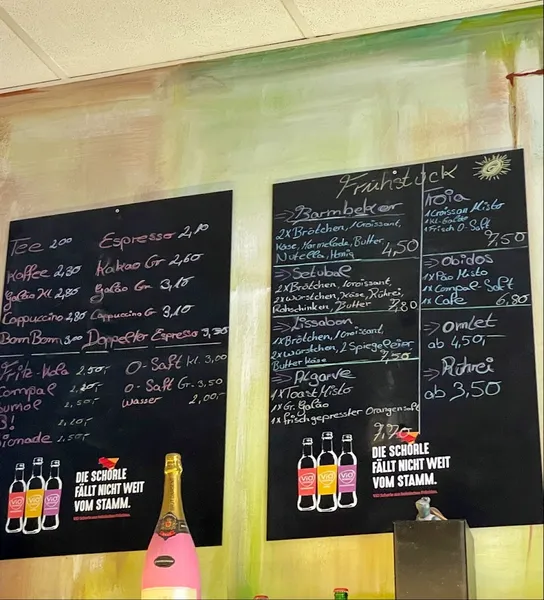 Tee 2,00
Espresso 2,10
Kaffee 2,80
Kakao Gr 2,60
Galão Kl. 2,80
Galão Gr 3,10
Cappuccino 2,80
Cappuccino Gr 3,10
BomBom 3,00
Doppelter Espresso 3,30
Fritz-Kola 2,50,-
O-Saft Kl. 3,00
Compal
O-Saft Gr. 3,50
Sumol 2,50,-
Wasser 2,00,-
B!
Bionade 2,50,-
ViO
ViO
ViO
DIE SCHORLE
FÄLLT NICHT WEIT
VOM STAMM.
Frühstück
Barmbeker
2x Brötchen, 1Croissant,
Käse, Marmelade, Butter
Nutella, Honig 4,50
Setubal
2x Brötchen, 1Croissant,
2x Würstchen, Käse, Rührei,
Rohschinken, Butter 7,80
Lissabon
1x Brötchen, 1Croissant
2x Würstchen, 2 Spiegeleier
Butter Käse 7,50
Algarve
1x Toast Misto
1x Gr. Galão
1x frischgepresster Orangensaft
7,70
Troia
1 Croissan Misto
1 KL-Galão
1 Frisch O-Saft
7,50
Obidos
1x Pão Misto
1x Compal-Saft
1x Cafe 6,80
Omlet
ab 4,50,
Rührei
ab 3,50
ViO
ViO
ViO
DIE SCHORLE
FÄLLT NICHT WEIT
VOM STAMM.